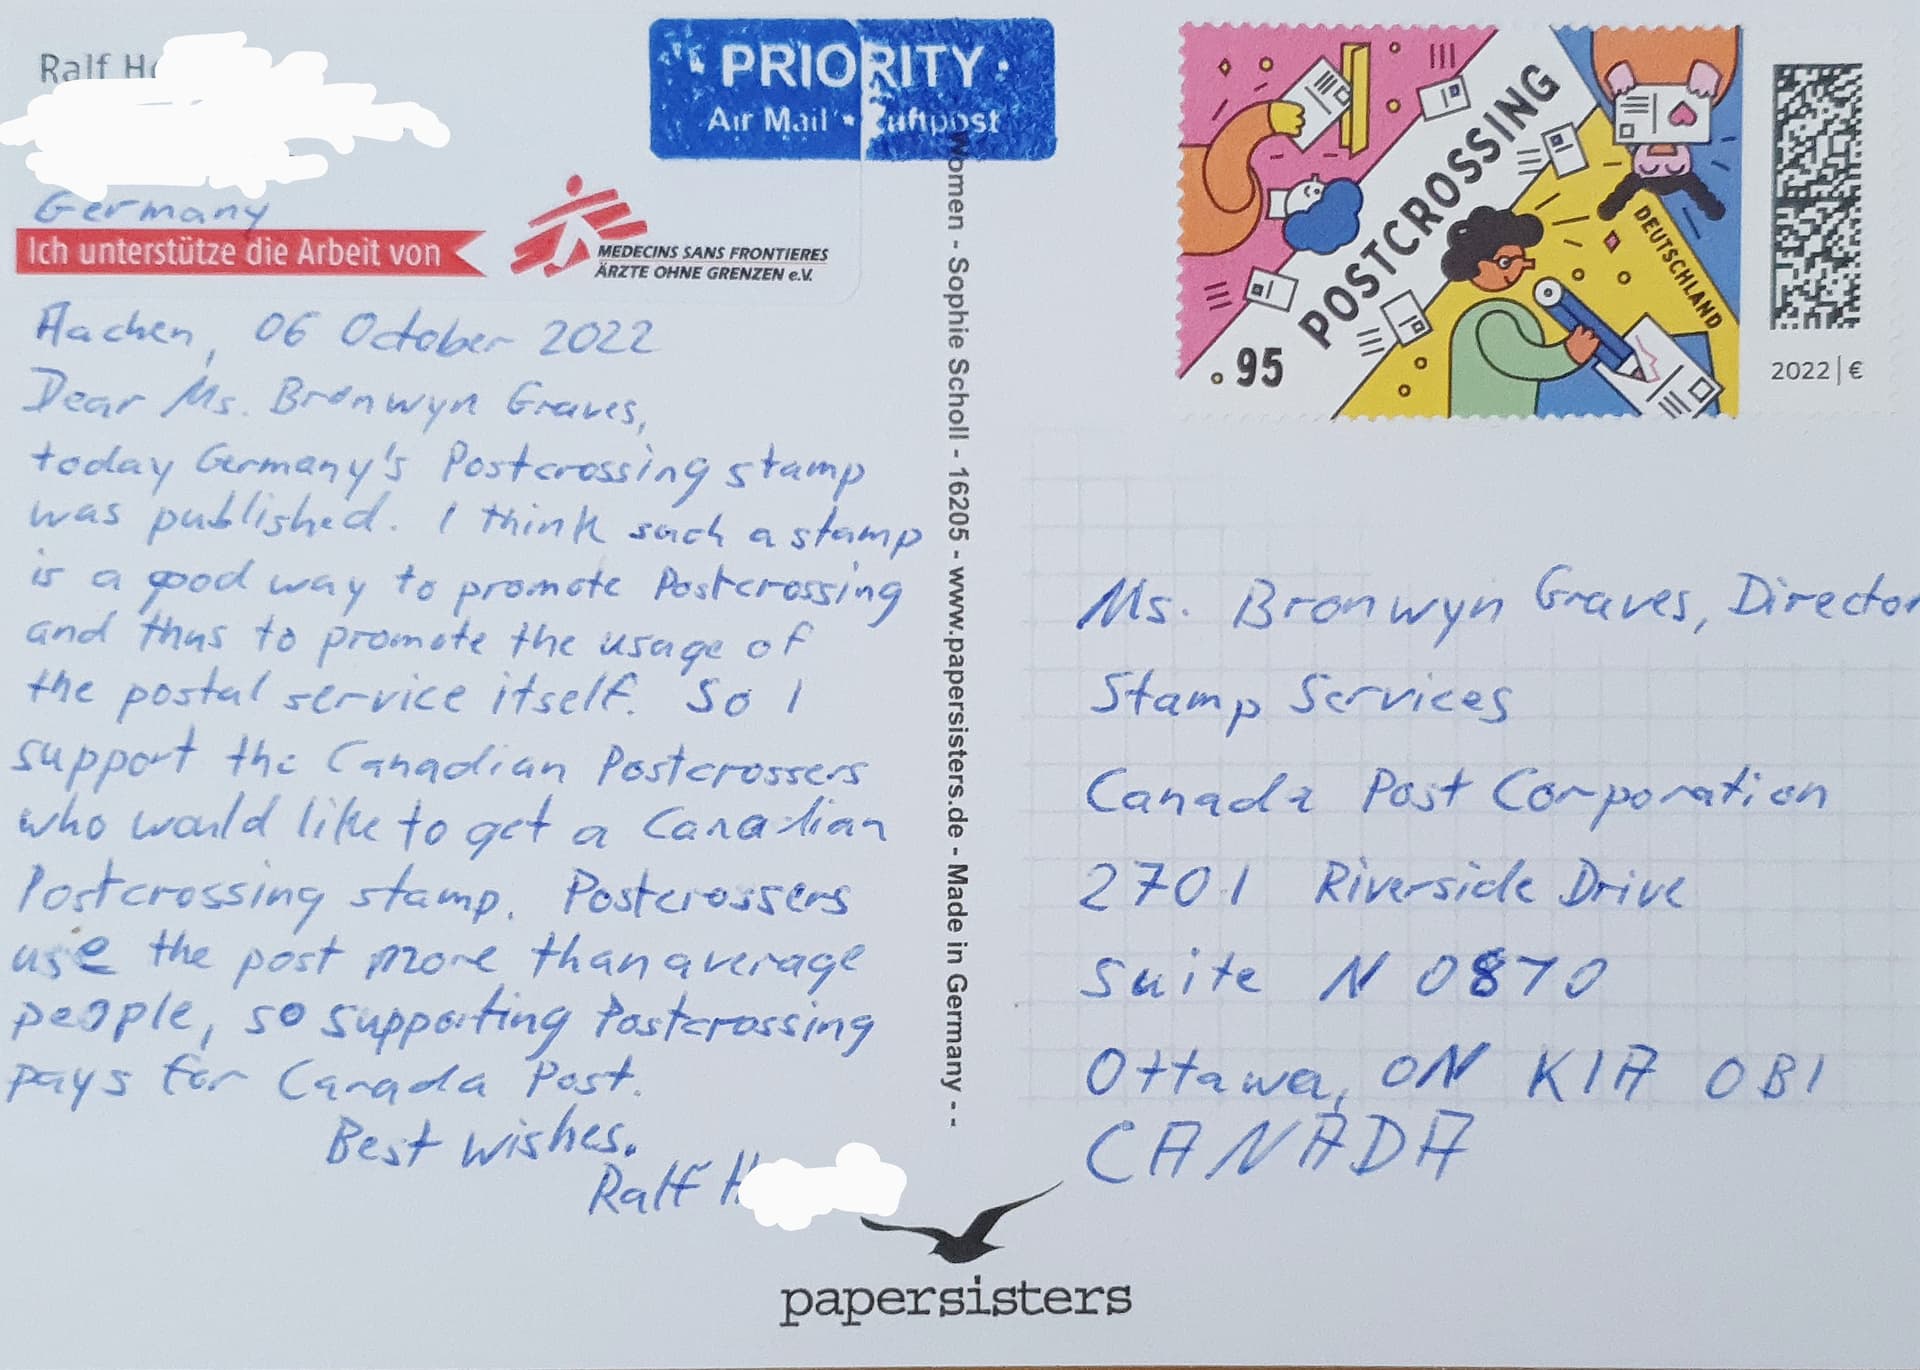 Ralf H
Germany
Ich unterstütze die Arbeit von
MEDECINS SANS FRONTIERES
ÄRZTE OHNE GRENZEN e.V.
PRIORITY
Air Mail • Luftpost
Aachen, 06 October 2022
Dear Ms. Bronwyn Graves,
today Germany's Postcrossing stamp
was published. I think such a stamp
is a good way to promote Postcrossing
and thus to promote the usage of
the postal service itself. So I
support the Canadian Postcrossers
who would like to get a Canadian
Postcrossing stamp. Postcrossers
use the post more than average
people, so supporting Postcrossing
pays for Canada Post.
Best wishes.
Ralf H
Women - Sophie Scholl - 16205 - www.papersisters.de - Made in Germany - -
POSTCROSSING
DEUTSCHLAND
.95
2022 | €
Ms. Bronwyn Graves, Director
Stamp Services
Canada Post Corporation
2701 Riverside Drive
Suite N 0870
Ottawa, ON K1A 0B1
CANADA
papersisters